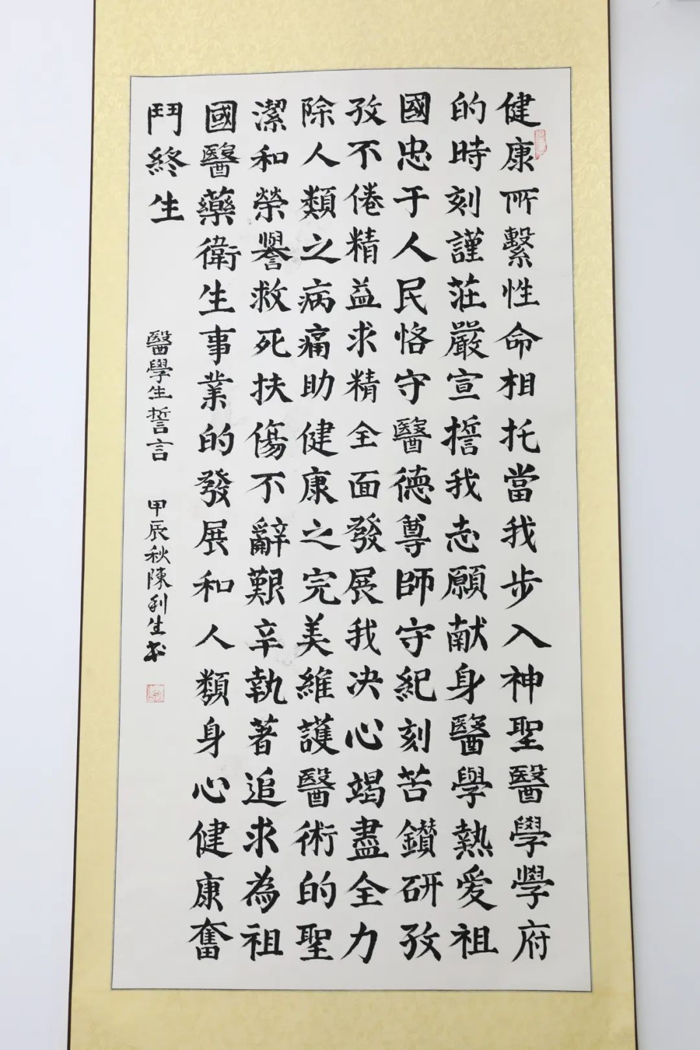 健康所繫性命相托當我步入神聖醫學學府
的時刻謹莊嚴宣誓我志願献身醫學熱愛祖
國忠于人民恪守醫德尊師守紀刻苦鑽研孜
孜不倦精益求精全面發展我决心竭盡全力
除人類之病痛助健康之完美維護醫術的聖
潔和榮譽救死扶傷不辭艱辛執著追求為祖
國醫藥衛生事業的發展和人類身心健康奮
鬥終生
醫學生誓言 甲辰秋陳利生书